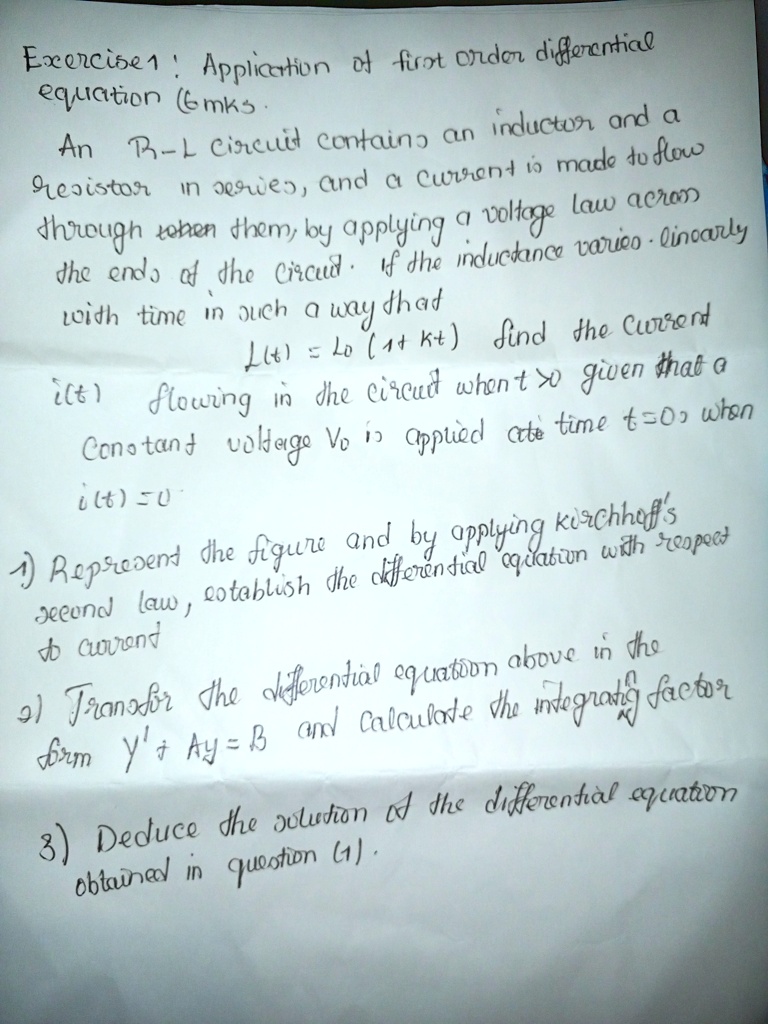 Exercise 1 : Application of first order differential
equation (6 mks.
An R-L circuit contains an inductor and a
resistor in series, and a current is made to flow
through them, by applying a voltage law across
the ends of the circuit. if the inductance varies linearly
with time in such a way that
L(t) = L0 (1 + Kt) find the current
i(t) flowing in the circuit when t >0 given that a
constant voltage V0 is applied at time t=0, when
i(t) = 0
1) Represent the figure and by applying kirchhoff's
second law, establish the differential equation with respect
to current
2) Transfor the differential equation above in the
form Y' + Ay = B and calculate the integrating factor
3) Deduce the solution of the differential equation
obtained in question (1).